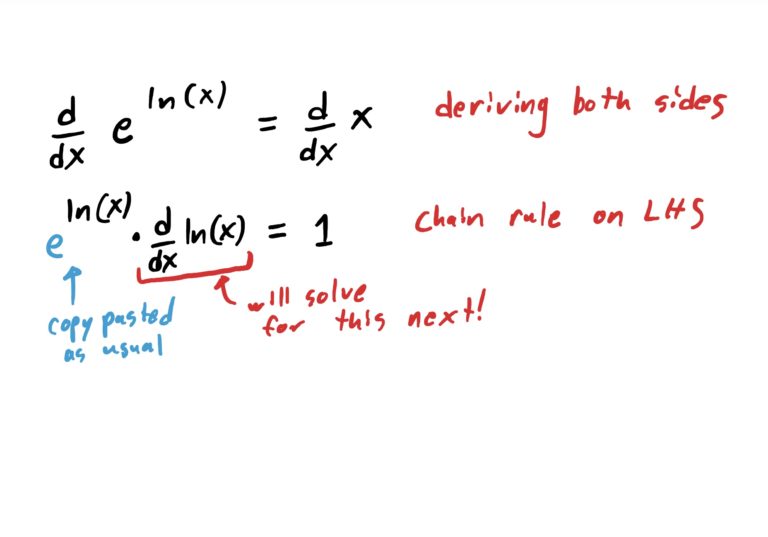 d/dx e^ln(x) = d/dx x deriving both sides
e^ln(x) · d/dx ln(x) = 1 chain rule on LHS
copy pasted
as usual
will solve
for this next!